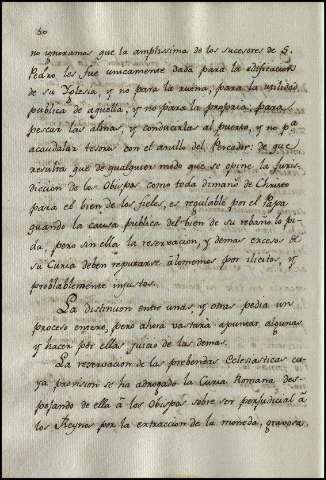 60
no ignoramos que la amplissima de los sucesores de S.
Pedro, les fue unicamente dada para la edificacion
de su Yglesia, y no para la ruina; para la utilidad
publica de aquella, y no para la propria; para
pescar las almas, y conducirlas al puerto, y no pª
acaudalar tesoros con el anillo del Pescador: de que
resulta que de qualquier modo que se opine, la Juris-
diccion de los Obispos como toda dimanò de Christo
para el bien de los fieles, es regulable por el Papa
quando la causa publica del bien de su rebaño lo pi-
da, pero sin ella la reservacion, y demas excesos de
su Curia deben reputarse àlomenos por ilicitos, y
problablemente injustos.
La distincion entre unas, y otras pedia un
proceso entero, pero ahora vastarà apuntar algunas
y hacer por ellas juicio de las demas.
La reservacion de las prebendas Eclesiasticas cu-
ya provision se ha adrogado la Curia Romana des-
pojando de ella à los Obispos sobre ser perjudicial à
los Reynos por la extraccion de la moneda, gravosa,